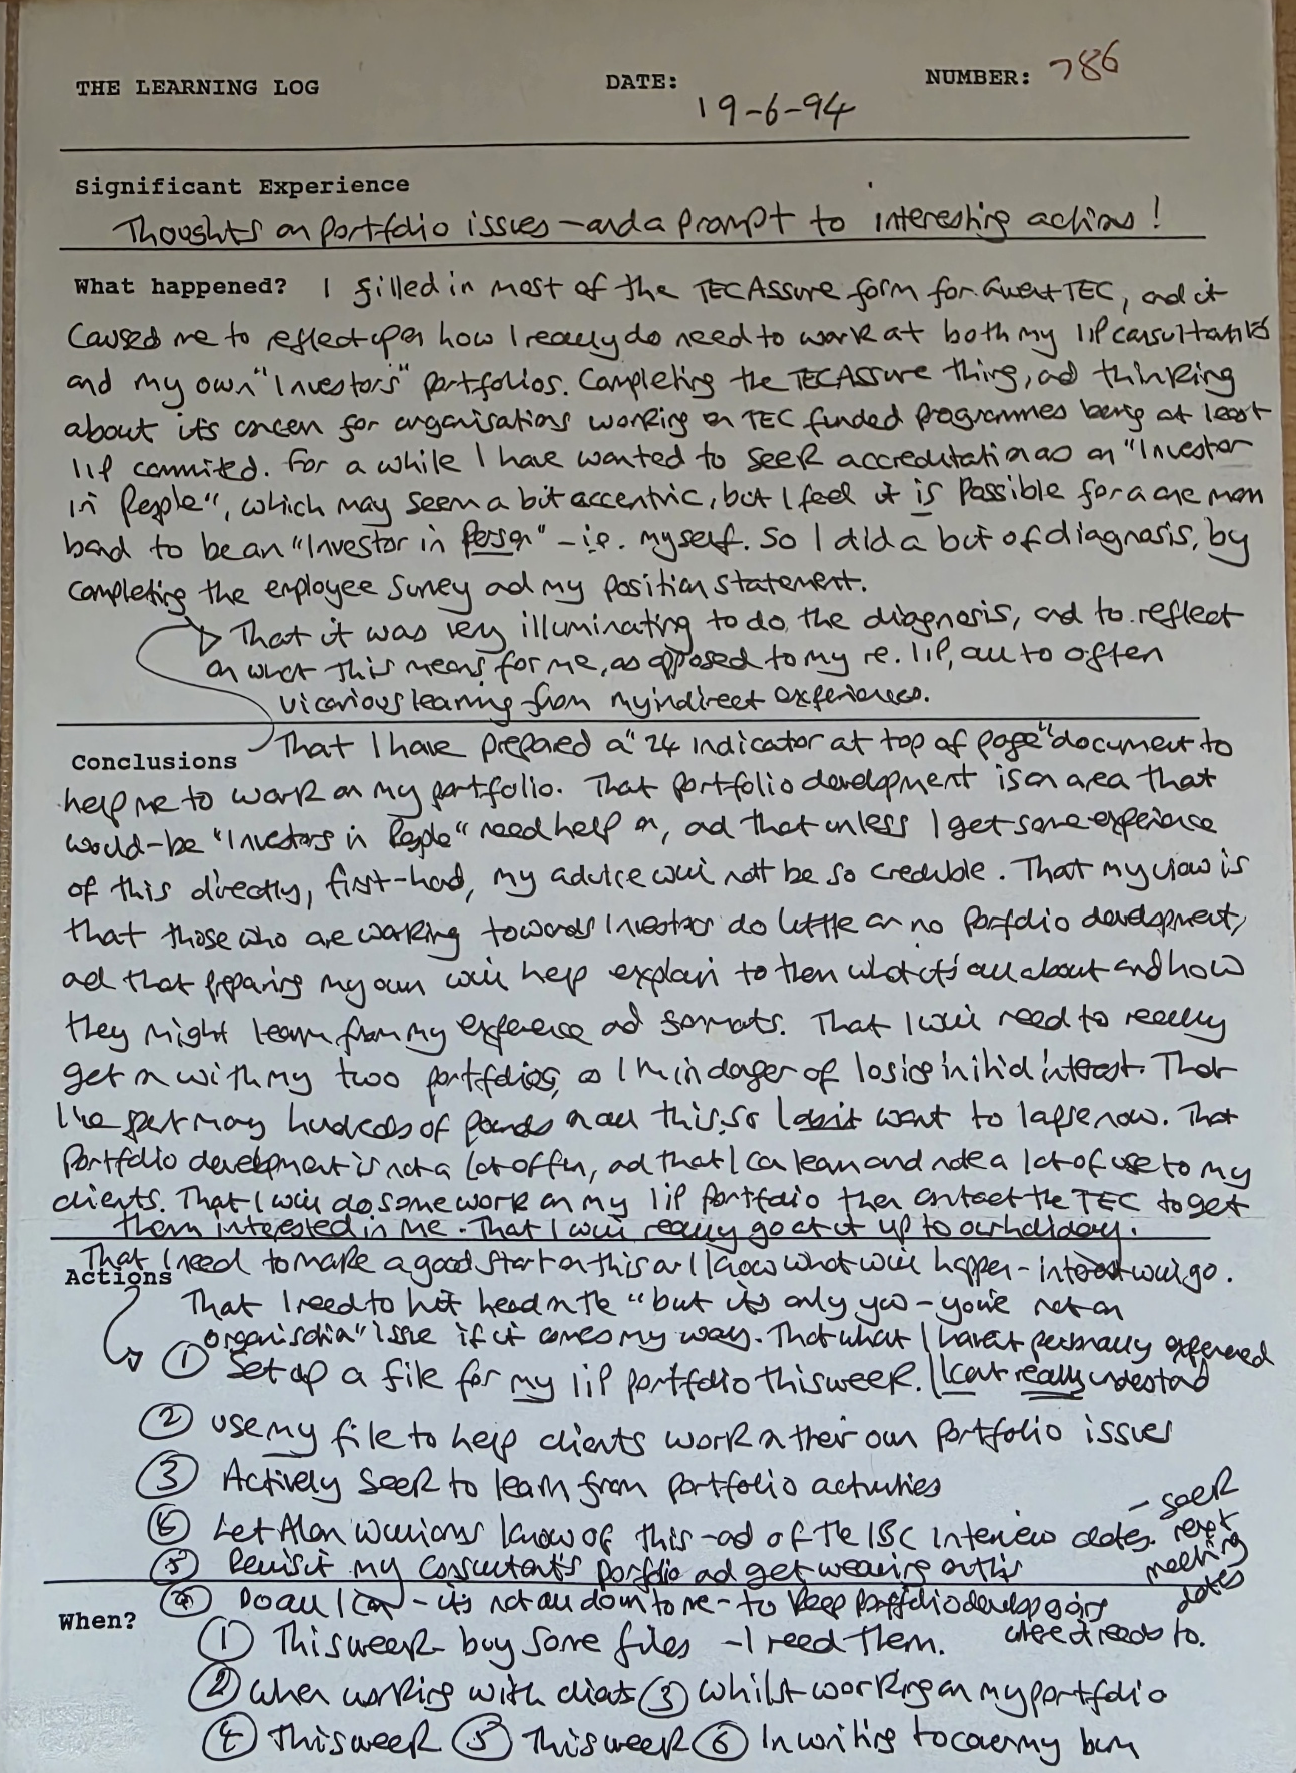 THE LEARNING LOG DATE: 19-6-94 NUMBER: 786
Significant Experience
Thoughts on portfolio issues - and a prompt to interesting actions!
What happened? I filled in most of the TECASSURE form for Gwent TEC, and it
caused me to reflect upon how I really do need to work at both my IIP consultants
and my own "Investors" portfolios. Completing the TECASSURE thing, and thinking
about its concern for organisations working on TEC funded programmes being at least
IIP commited. For a while I have wanted to seek accreditation as an "Investor
in People", which may seem a bit accentric, but I feel it is possible for a one man
band to be an "Investor in Person" - i.e. myself. So I did a bit of diagnosis, by
completing the employee survey and my position statement.
That it was very illuminating to do the diagnosis, and to reflect
on what this means for me, as opposed to my re. IIP, all to often
vicarious learning from my indirect experiences.
Conclusions That I have prepared a "24 indicator at top of page" document to
help me to work on my portfolio. That portfolio development is an area that
would-be "Investors in People" need help on, and that unless I get some experience
of this directly, first-hand, my advice will not be so credible. That my view is
that those who are working towards Investors do little or no portfolio development,
and that preparing my own will help explain to them what it's all about and how
they might learn from my experience and formats. That I will need to really
get on with my two portfolios, as I'm in danger of losing initial interest. That
I've spent many hundreds of pounds on all this, so I don't want to lapse now. That
portfolio development is not a lot of fun, and that I can learn and note a lot of use to my
clients. That I will do some work on my IIP portfolio then contact the TEC to get
them interested in me. That I will really go at it up to our holiday.
That I need to make a good start on this or I know what will happen - interest will go.
Actions
That I need to hit head on the "but its only you - you're not an
organisation" issue if it comes my way. That what I haven't personally experienced
I cant really understand
① Set up a file for my IIP portfolio this week.
② Use my file to help clients work on their own portfolio issues
③ Actively seek to learn from portfolio activities
⑥ Let Alan Williams know of this - and of the ISC interview dates - seek next meeting dates
⑤ Revisit my Consultant's portfolio and get weaving on this
④ Do all I can - its not all down to me - to keep portfolio develop going
where it needs to.
When?
① This week - buy some files - I need them.
② When working with clients ③ Whilst working on my portfolio
④ This week ⑤ This week ⑥ In writing to cover my bum